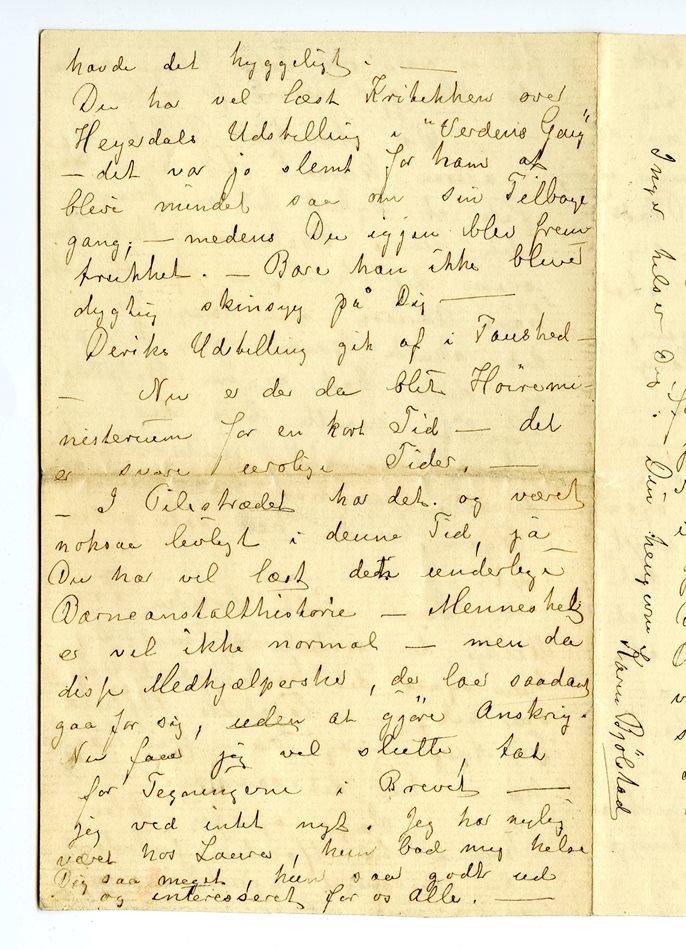 havde det hyggeligt. —
Du har vel læst Kritikken over
Heyerdals Udstilling i "Verdens Gang"
— det var jo slemt for ham at
blive mindet saa om sin Tilbage
gang; — medens Du igjen blev frem
trukket. — Bare han ikke bliver
dygtig skinsyg på Dig —
Deriks Udstilling gik af i Taushed —
— Nu er der da blit Höiremi-
nisterium for en kort Tid — det
er svare urolige Tider. —
— I Pilestrædet har det og været
noksaa livligt i denne Tid, ja
Du har vel læst dette underlige
Barneanstalthistorie — Mennesket
er vel ikke normal — men da
disse Medhjælpersker, der lar saadant
gaa for sig, uden at gjöre Anskrig.
Nu faar jeg vel slutte, tak
for Tegningerne i Brevet —
jeg ved intet nyt. Jeg har nylig
været hos Laura, hun bad mig helse
Dig saa meget, hun saa godt ud
og interesseret for os Alle. —
Inger helser Dig.
Din hengivne Karen Bjölstad